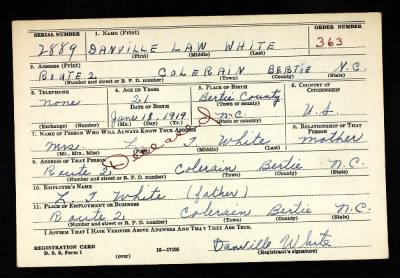 SERIAL NUMBER 1. NAME (Print) ORDER NUMBER
2889 DANVILLE LAW WHITE 363
(First) (Middle) (Last)
2. ADDRESS (Print)
ROUTE 2 COLERAIN BERTIE N.C.
(Number and street or R. F. D. number) (Town) (County) (State)
3. TELEPHONE 4. AGE IN YEARS 5. PLACE OF BIRTH 6. COUNTRY OF CITIZENSHIP
none 21 Bertie County
DATE OF BIRTH (Town or county)
June 18, 1919 N.C. U.S.
(Exchange) (Number) (Mo.) (Day) (Yr.) (State or country)
7. NAME OF PERSON WHO WILL ALWAYS KNOW YOUR ADDRESS 8. RELATIONSHIP OF THAT PERSON
Mrs. L. T. White Mother
(Mr., Mrs., Miss) (First) (Middle) (Last)
Deceased
9. ADDRESS OF THAT PERSON
Route 2 Colerain Bertie N.C.
(Number and street or R. F. D. number) (Town) (County) (State)
10. EMPLOYER'S NAME
L. T. White (father)
11. PLACE OF EMPLOYMENT OR BUSINESS
Route 2 Colerain Bertie N.C.
(Number and street or R. F. D. number) (Town) (County) (State)
I AFFIRM THAT I HAVE VERIFIED ABOVE ANSWERS AND THAT THEY ARE TRUE.
REGISTRATION CARD
D. S. S. Form 1 (over) 16—17105
Danville White
(Registrant's signature)